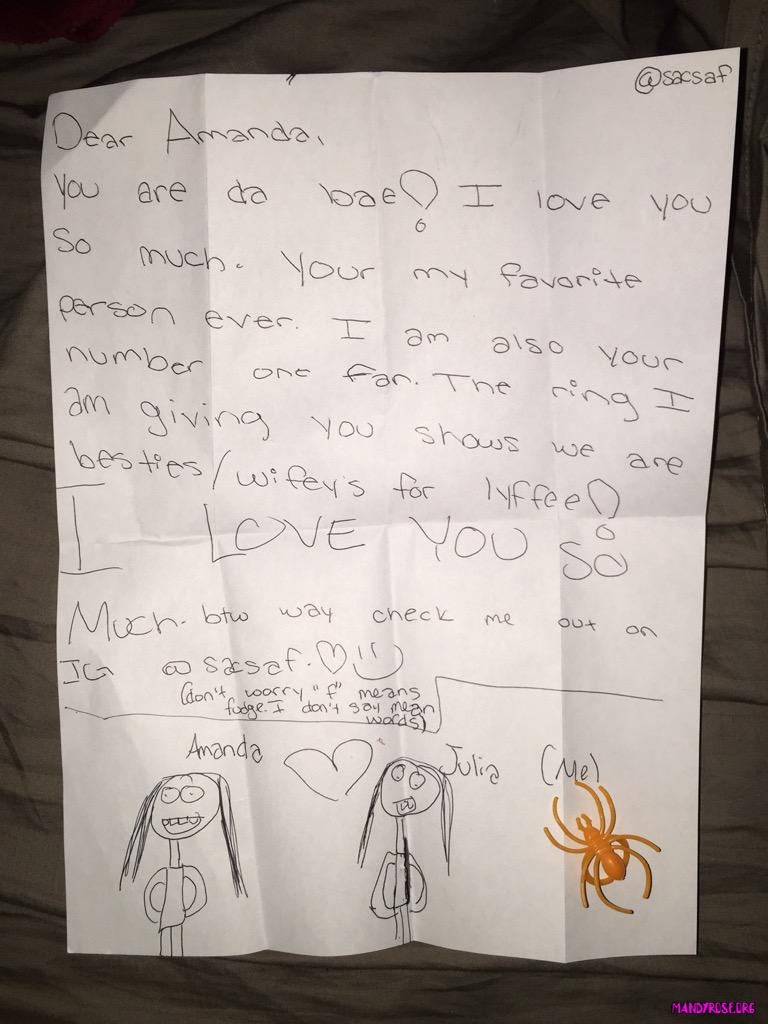 @sacsaf
Dear Amanda,
You are da bae! I love you
so much. Your my favorite
person ever. I am also your
number one fan. The ring I
am giving you shows we are
besties/wifey's for lyffee!
I LOVE YOU SO
Much. btw way check me out on
IG @sacsaf. ♡ :)
(don't worry "f" means
fudge. I don't say mean
words)
Amanda ♡ Julia (Me)
MANDYROSE.ORG